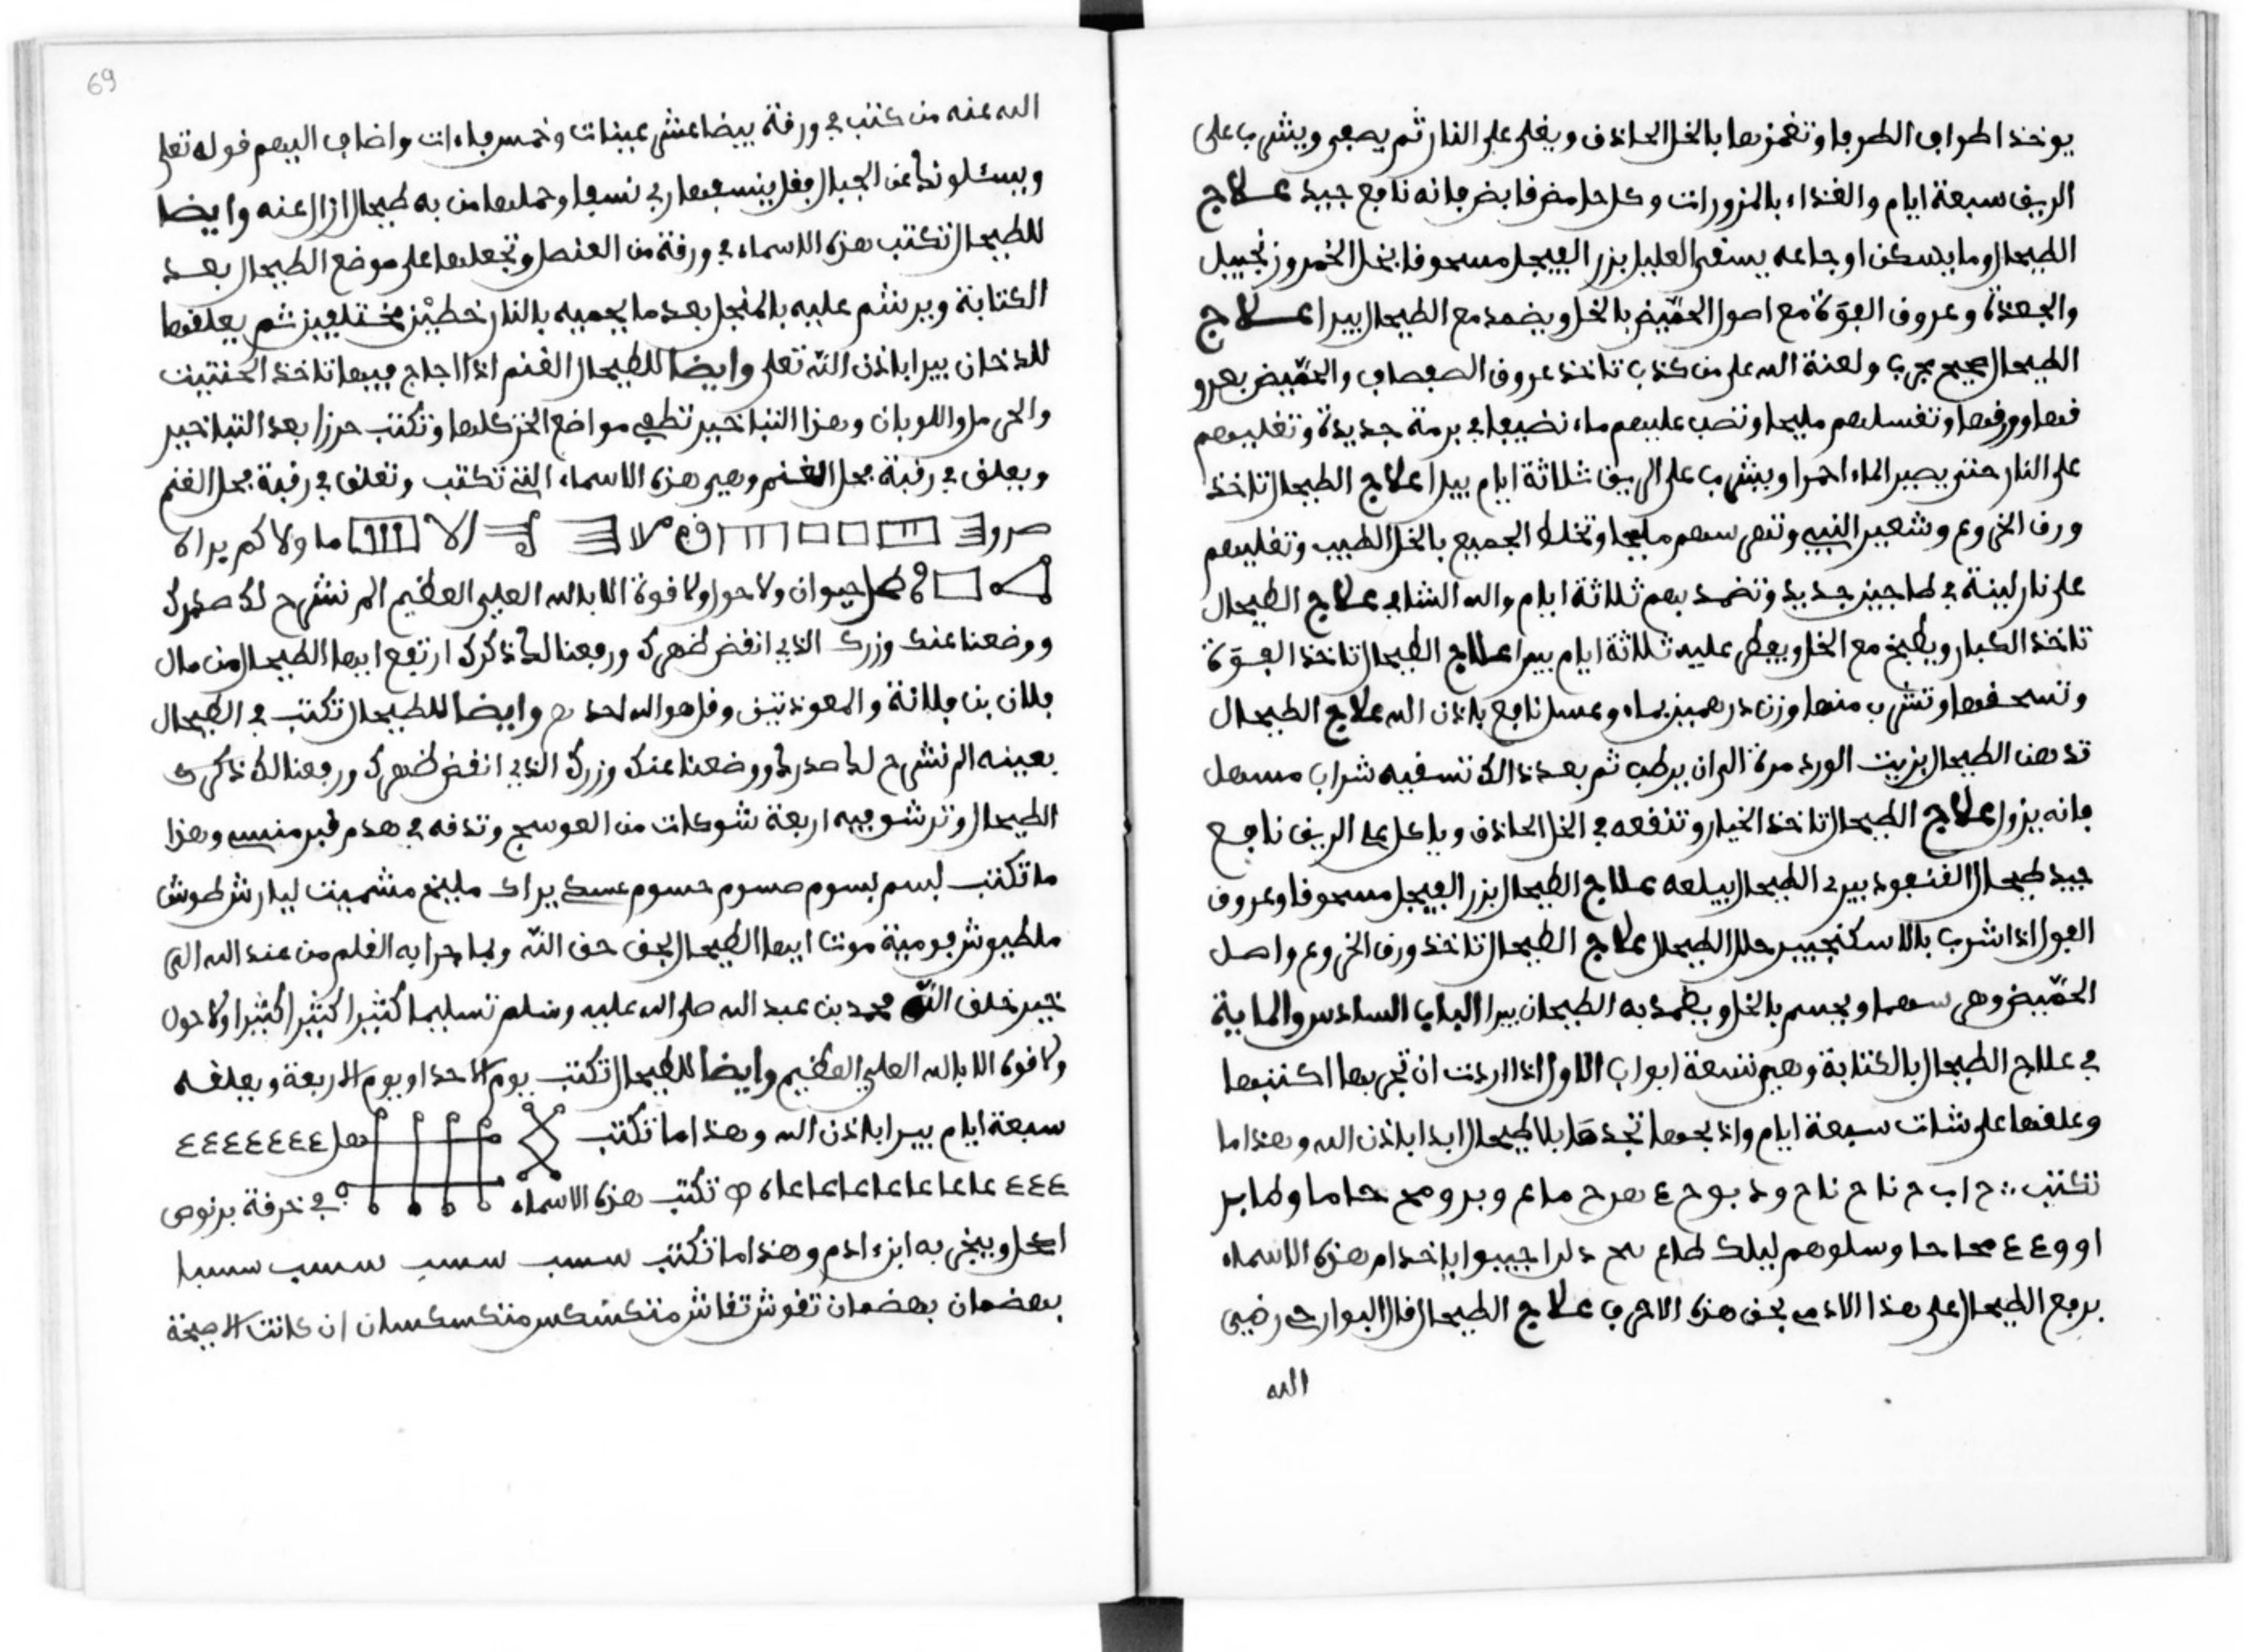 يوخذ اطراف الطرفا وتغمزها بالخل الحاذق ويغلى على النار ثم يصفى ويشرب على
الريق سبعة ايام والغذاء بالمزورات وكل حامض قابض فانه نافع جيد علاج
الطيحال وما يسكن اوجاعه يسقى العليل بزر الفيجل مسحوقا بخل الخمر وزنجبيل
والجعدة وعروق الفوّة مع اصول الحمّيض بالخل ويضمد مع الطيحال يبرا علاج
الطيحال صحيح مجرب ولعنة الله على من كذب تاخذ عروق الصفصاف والحمّيض بعرو
قها وورقها وتغسلهم مليحا وتصب عليهم ماء نضيفا في برمة جديدة وتغليهم
على النار حتى يصير الماء احمرا ويشرب على الريق ثلاثة ايام يبرا علاج الطيحال تاخذ
ورق الخروع وشعير النبي وتهرسهم مليحا وتخلط الجميع بالخل الطيب وتغليهم
على نار لينة في طاجين جديد وتضمد بهم ثلاثة ايام والله الشافي علاج الطيحال
تاخذ الكبار ويطبخ مع الخل ويفطر عليه ثلاثة ايام يبرا علاج الطيحال تاخذ الفوّة
وتسحقها وتشرب منها وزن درهمين بماء وعسل نافع باذن الله علاج الطيحال
تدهن الطيحال بزيت الورد مرة الى ان يرطب ثم بعد ذالك تسقيه شراب مسهل
فانه يزول علاج الطيحال تاخذ الخيار وتنقعه في الخل الحاذق وياكل على الريق نافع
جيد طيحال القنفود يبرى الطيحال يبلعه علاج الطيحال بزر الفيجل مسحوقا وعروق
الفول اذا شرب بالاسكنجبير حلل الطيحال علاج الطيحال تاخذ ورق الخروع واصل
الحمّيض وهرسهما ويجسم بالخل ويضمد به الطيحان يبرا الباب السادس والماية
في علاج الطيحال بالكتابة وهي تسعة ابواب الاول اذا اردت ان تجربها اكتبها
وعلقها على شات سبعة ايام واذبحها تجدها بلا طيحال ابدا باذن الله وهذا ما
تكتب ح ا ب ح ناح ناح ود بوح ع هرح ماع وبرومح حاما وطابر
اووع ع محاحا وسلوهم ليلك طاع دلرا جيبوا ياخدام هذه الاسماء
برفع الطيحال على هذا الادمي بحق هذه الاحرف علاج الطيحال قال البوارحي رضي
الله
69
الله عنه من كتب في ورقة بيضا عشر عينات وخمس فاءات واضاف اليهم قوله تعلى
ويسئلونك عن الجبال فقل ينسفها ربي نسفا وحملها من به طيحال ازال عنه وايضا
للطيحال تكتب هذه الاسماء في ورقة من العنصل وتجعلها على موضع الطيحال بعد
الكتابة ويرشم عليه بالمنجل بعد ما يحميه بالنار خطين مختلفين ثم يعلقها
للدخان يبرا باذن الله تعلى وايضا للطيحال الغنم اذا اجاج فيها تاخذ الحنتيت
والحرمل واللوبان وهذا التباخير تطفي مواضع الخز كلها وتكتب حرزا بعد التباخير
ويعلق في رقبة فحل الغنم وهي هذه الاسماء التي تكتب وتعلق في رقبة فحل الغنم
صرو ما ولاكم يراه
حيوان ولا حول ولا قوة الا بالله العلي العظيم الم نشرح لك صدرك
ووضعنا عنك وزرك الذي انقض ظهرك ورفعنا لك ذكرك ارتفع ايها الطيحال من مال
فلان بن فلانة والمعوذتين وقل هو الله احد وايضا للطيحال تكتب في الطيحال
بعينه الم نشرح لك صدرك ووضعنا عنك وزرك الذي انقض ظهرك ورفعنا لك ذكرك
الطيحال وترشو فيه اربعة شوكات من العوسج وتدفنه في هدم قبر منسي وهذا
ما تكتب لبسم بسوم صسوم حسوم عسك يراك مليخ مشميت ليارش طوش
ملطيوش فومية موتا ايها الطيحال بحق حق الله وبما جرا به القلم من عند الله الى
خير خلق الله محمد بن عبد الله صلى الله عليه وسلم تسليما كثيرا كثيرا كثيرا ولا حول
ولا قوة الا بالله العلي العظيم وايضا للطيحال تكتب يوم الاحد او يوم الاربعة ويعلقه
سبعة ايام يبرا باذن الله وهذا ما تكتب هل ع ع ع ع ع ع ع
ع ع ع عا عا عا عا عا عا عاه تكتب هذه الاسماء في خرقة برنوص
اكحل ويبخر به ابن ادم وهذا ما تكتب سسب سسب سسب سسب سسبا
بهضمان بهضمان تقوش تقاش متكسكس متكسكسان ان كانت الا صيحة